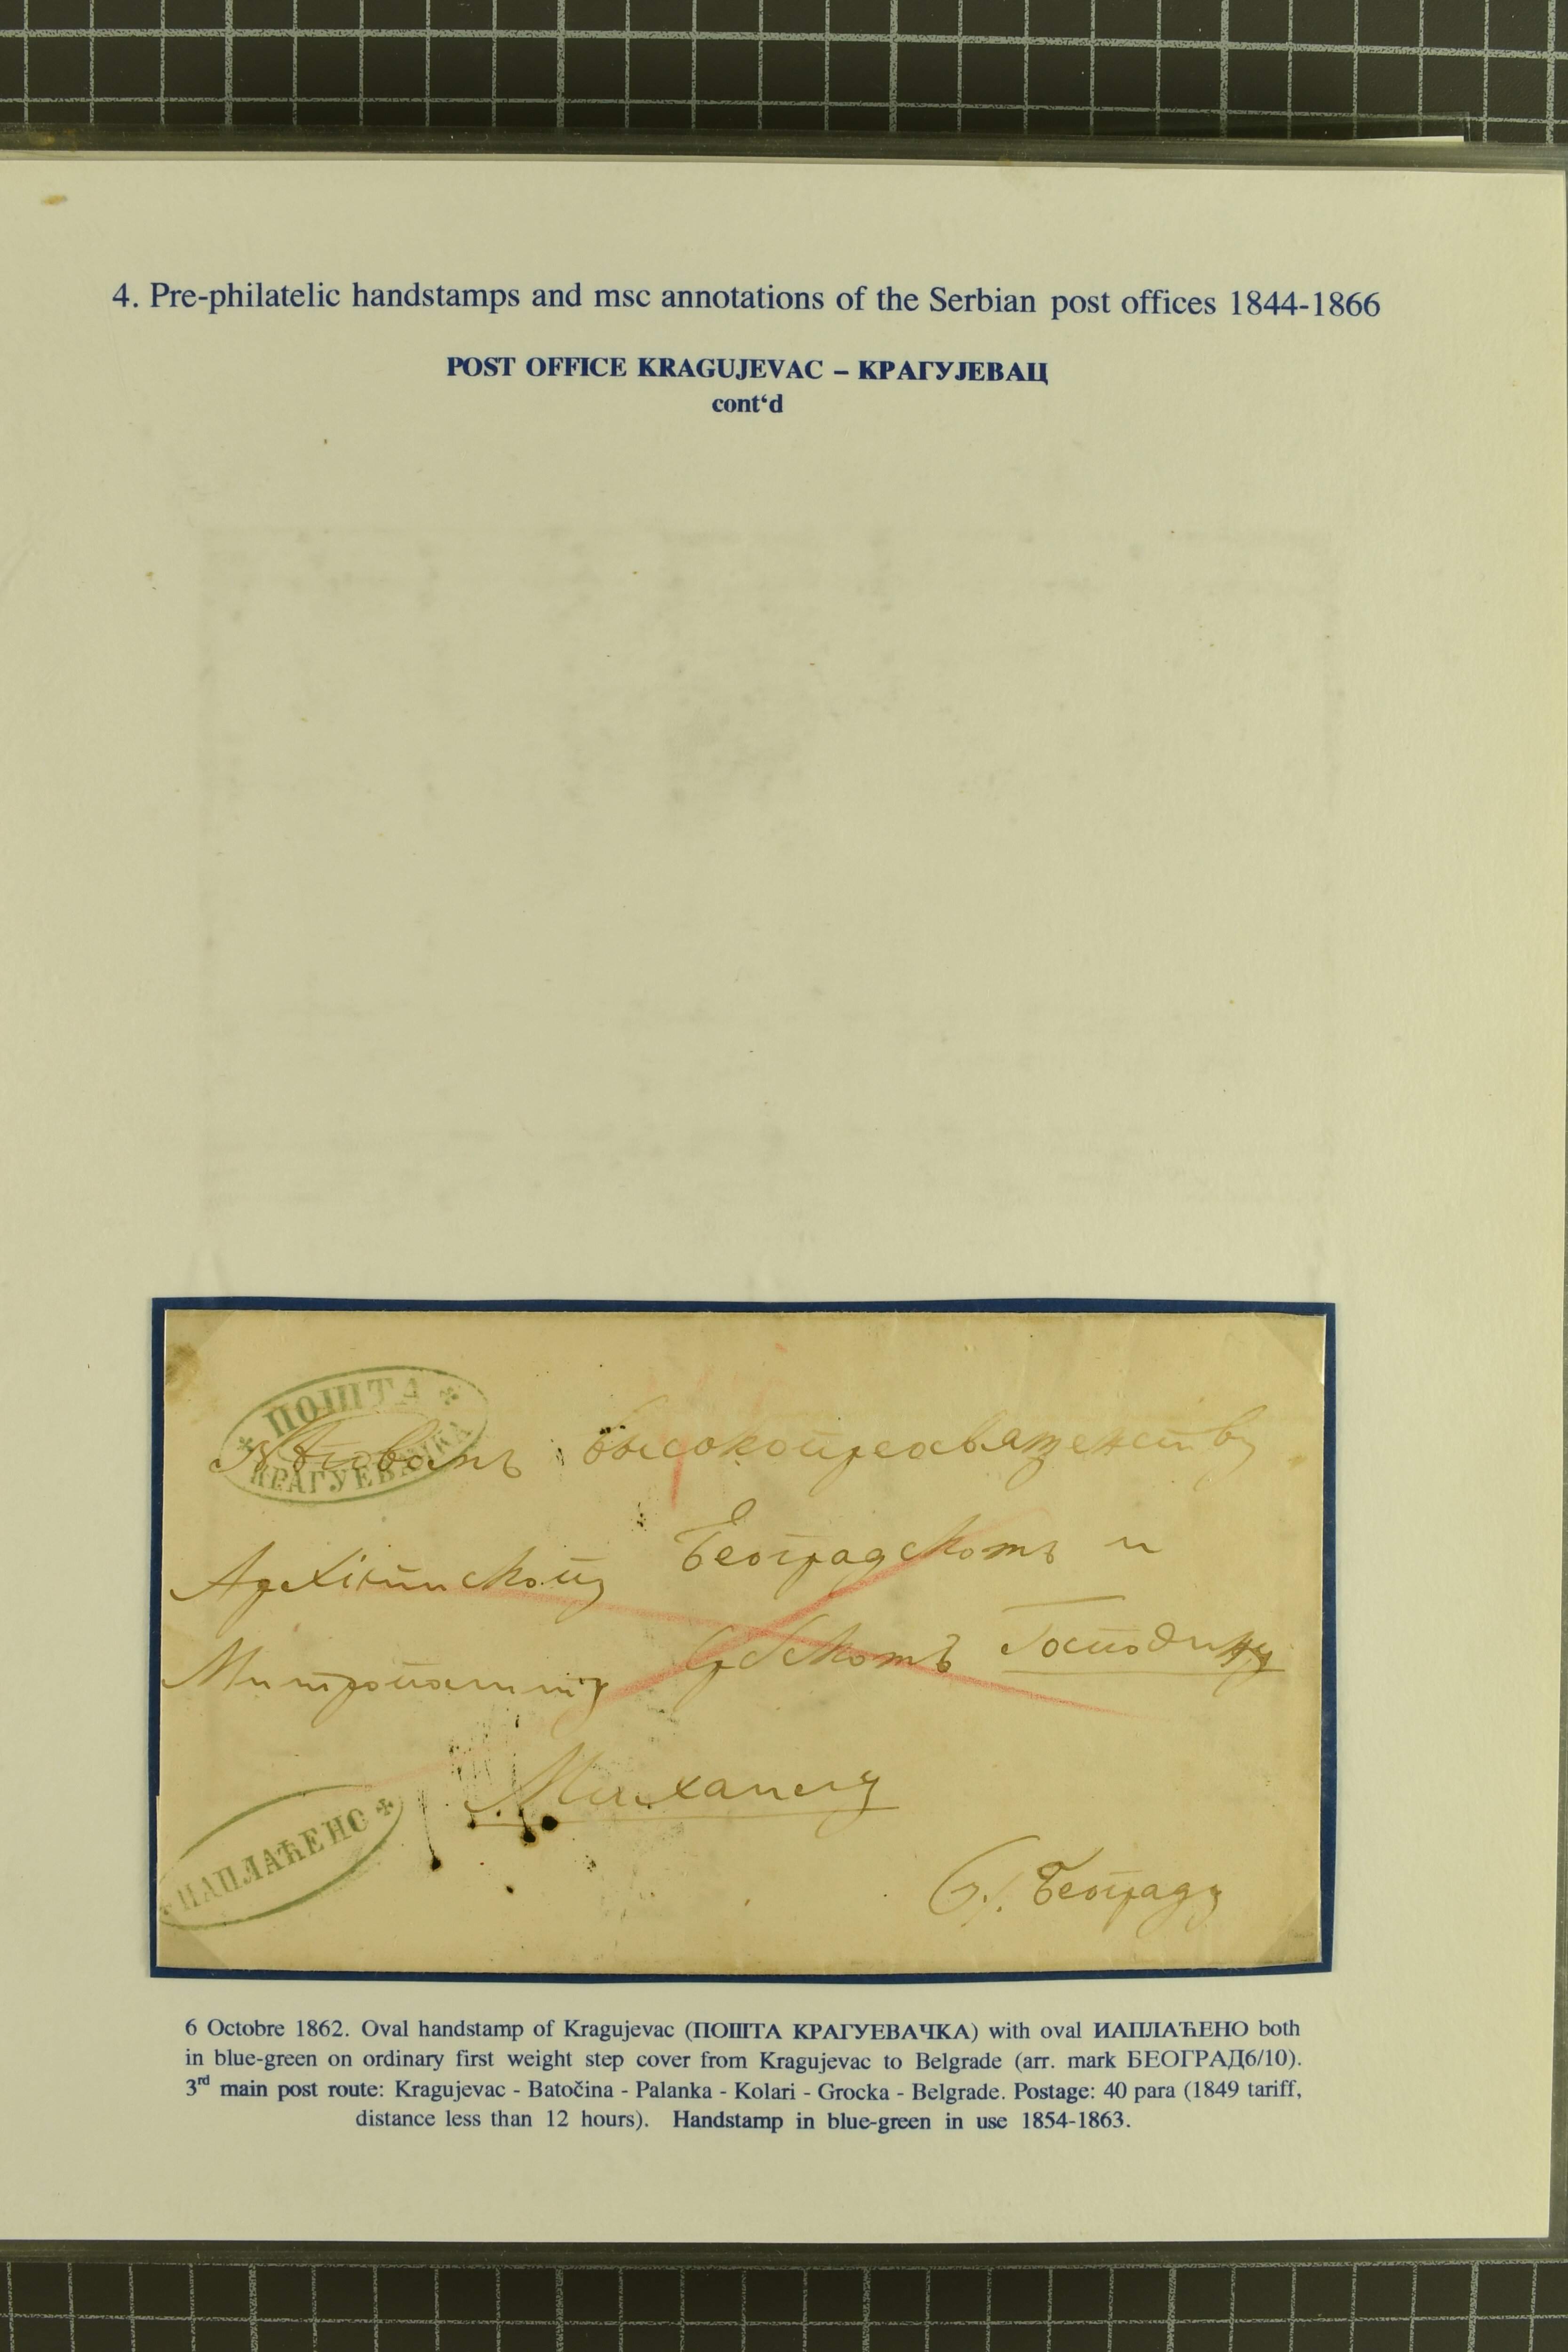 4. Pre-philatelic handstamps and msc annotations of the Serbian post offices 1844-1866
POST OFFICE KRAGUJEVAC – КРАГУЈЕВАЦ
cont‘d
ПОШТА
КРАГУЕВАЧКА
Высокопреосвященству
Архіепископу Београдскомъ и
Митрополиту Србскомъ Господину
Михаилу
Београду
НАПЛАЋЕНО
6 Octobre 1862. Oval handstamp of Kragujevac (ПОШТА КРАГУЕВАЧКА) with oval ИАПЛАЋЕНО both
in blue-green on ordinary first weight step cover from Kragujevac to Belgrade (arr. mark БЕОГРАД6/10).
3rd main post route: Kragujevac - Batočina - Palanka - Kolari - Grocka - Belgrade. Postage: 40 para (1849 tariff,
distance less than 12 hours). Handstamp in blue-green in use 1854-1863.